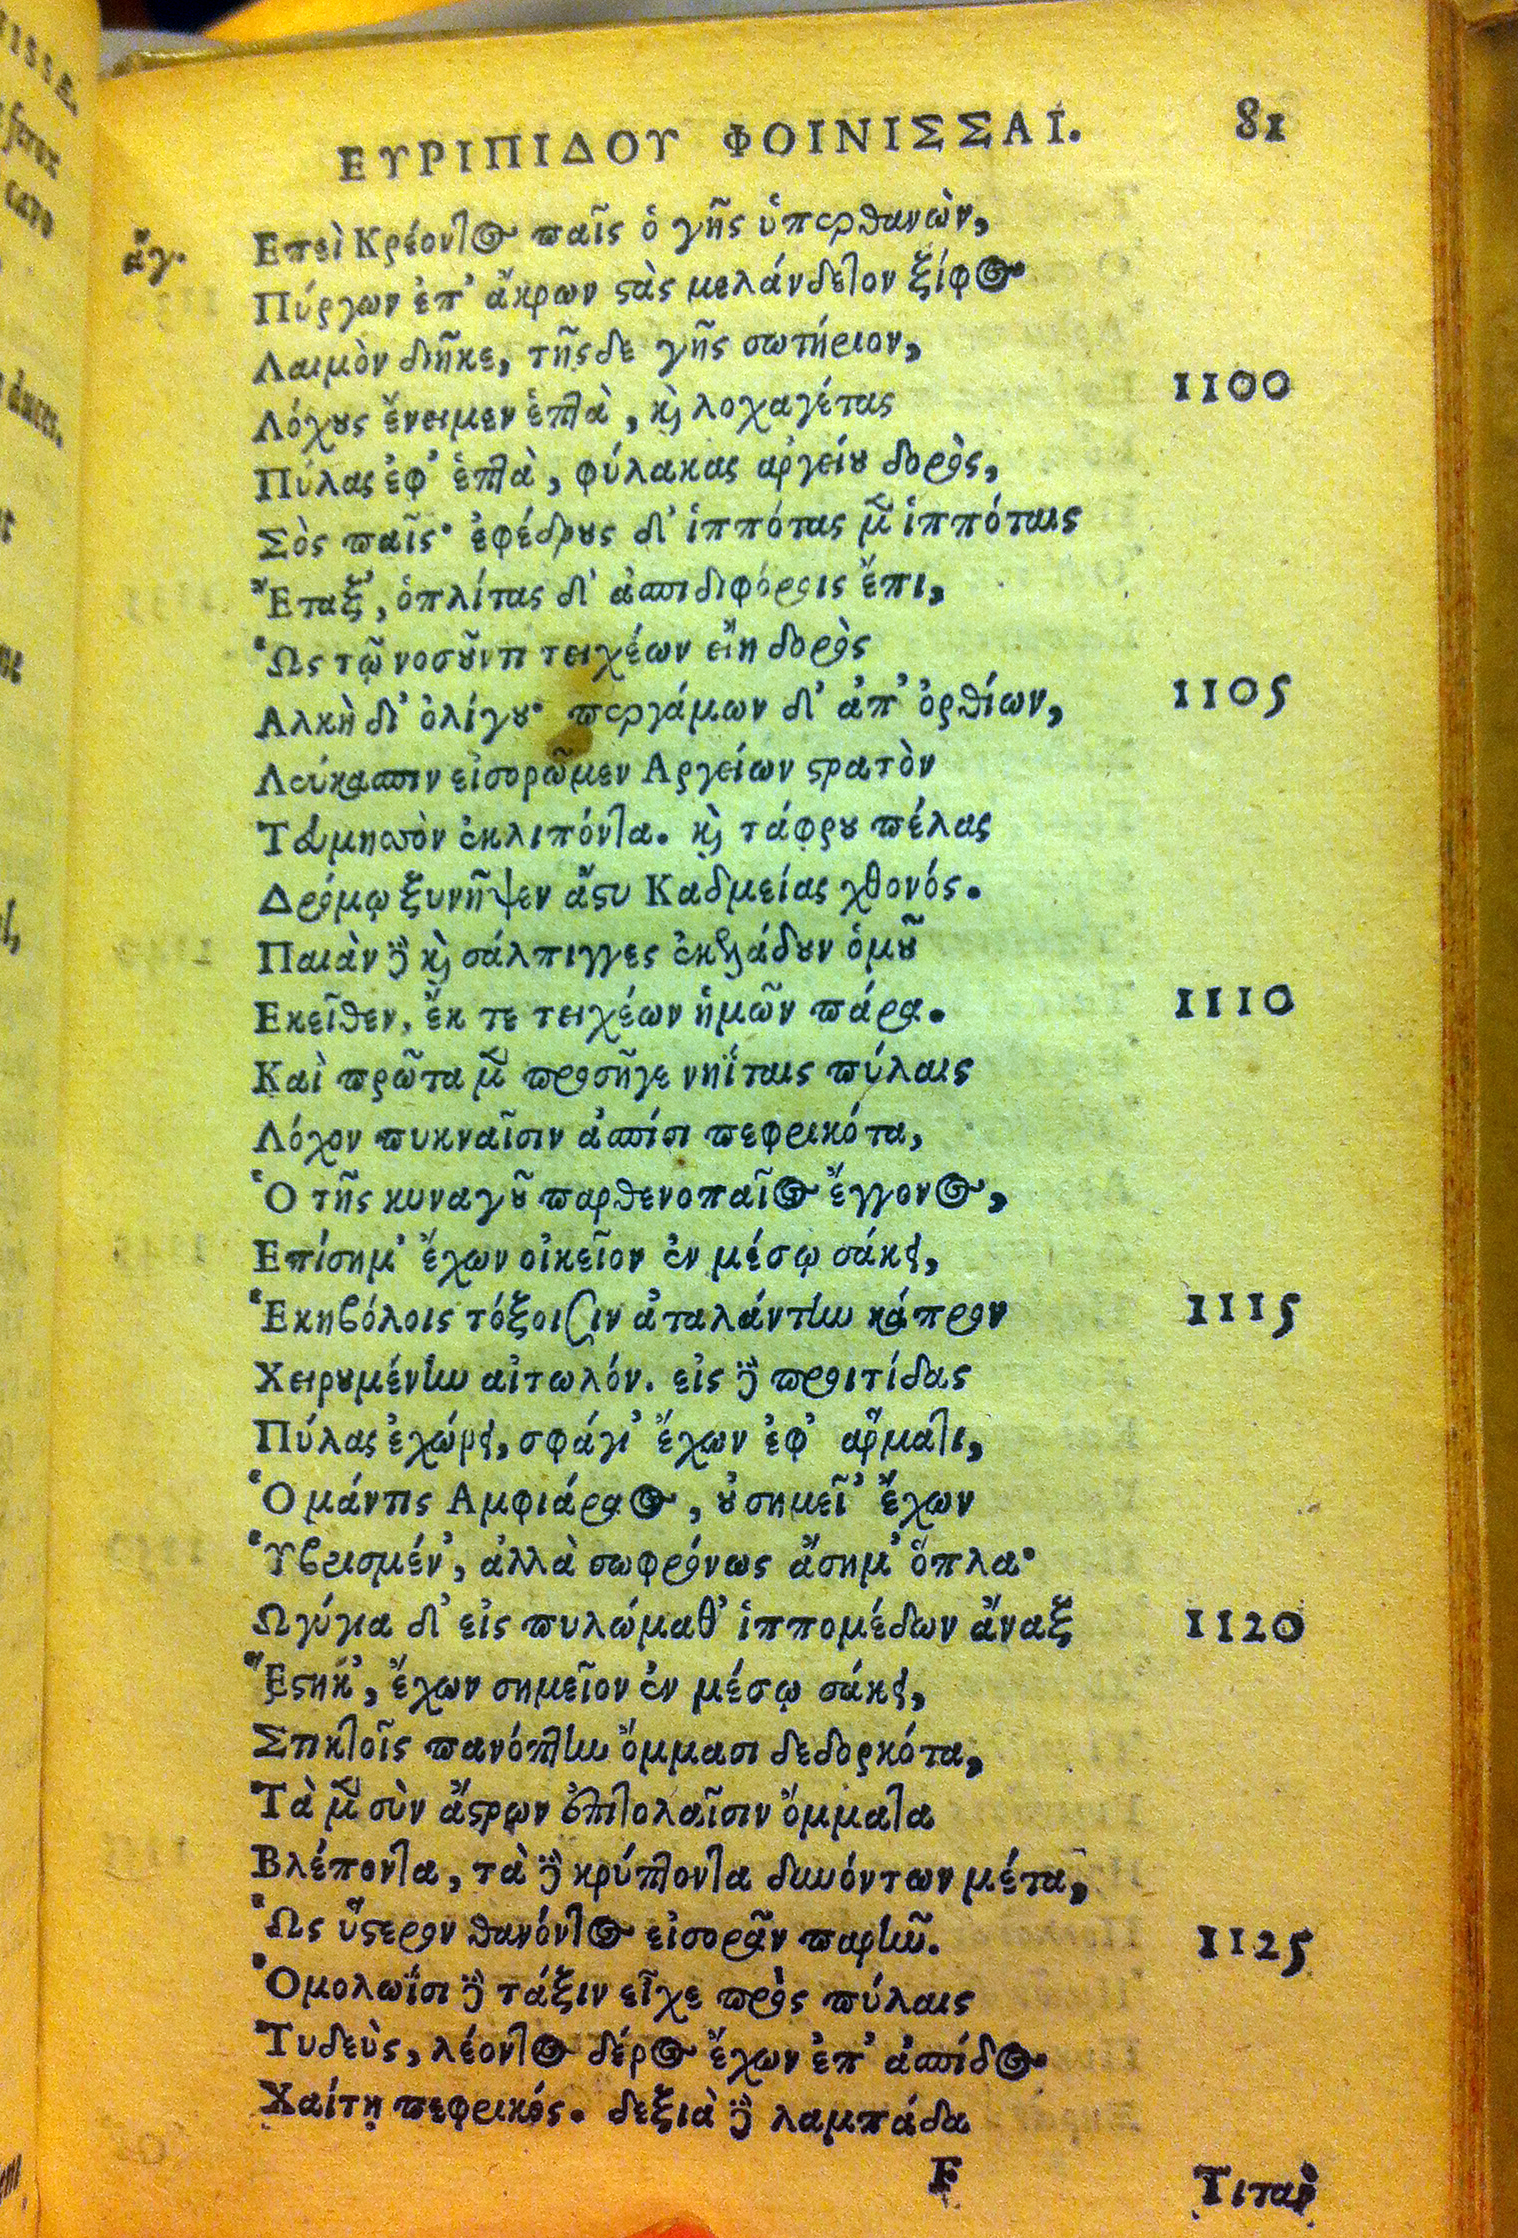 ΕΥΡΙΠΙΔΟΥ ΦΟΙΝΙΣΣΑΙ. 81
ἄγ. Επεὶ Κρέοντος παῖς ὁ γῆς ὑπερθανὼν,
Πύργων ἐπ' ἄκρων ϛὰς μελάνδετον ξίφος
Λαιμὸν διῆκε, τῆςδε γῆς σωτήριον,
Λόχους ἔνειμεν ἑπτὰ, καὶ λοχαγέτας 1100
Πύλας ἐφ' ἑπτὰ, φύλακας αργείου δορὸς,
Σὸς παῖς· ἐφέδρους δ' ἱππότας μὲν ἱππόταις
Ἔταξ', ὁπλίτας δ' ἀσπιδιφόροις ἔπι,
Ὡς τῷ νοσοῦντι τειχέων εἴη δορὸς
Αλκὴ δι' ὀλίγου· περγάμων δ' ἀπ' ὀρθίων, 1105
Λεύκασπιν εἰσορῶμεν Αργείων ϛρατὸν
Τευμησσὸν ἐκλιπόντα. καὶ τάφρου πέλας
Δρόμῳ ξυνῆψεν ἄϛυ Καδμείας χθονός.
Παιὰν δὲ καὶ σάλπιγγες ἐκελάδουν ὁμοῦ
Εκεῖθεν, ἔκ τε τειχέων ἡμῶν πάρα. 1110
Καὶ πρῶτα μὲν προσῆγε νηΐταις πύλαις
Λόχον πυκναῖσιν ἀσπίσι πεφρικότα,
Ὁ τῆς κυναγοῦ παρθενοπαῖος ἔγγονος,
Επίσημ' ἔχων οἰκεῖον ἐν μέσῳ σάκει,
Ἑκηβόλοις τόξοισιν ἀταλάντην κάπρον 1115
Χειρουμένην αἰτωλόν. εἰς δὲ προιτίδας
Πύλας ἐχώρει, σφάγι' ἔχων ἐφ' αρματι,
Ὁ μάντις Αμφιάραος, οὐ σημεῖ' ἔχων
Ὑβρισμέν', ἀλλὰ σωφρόνως ἄσημ' ὅπλα·
Ωγύγια δ' εἰς πυλώμαθ' ἱππομέδων ἄναξ 1120
Ἔϛηκ', ἔχων σημεῖον ἐν μέσῳ σάκει,
Στικτοῖς πανόπτην ὄμμασι δεδορκότα,
Τὰ μὲν σὺν ἄϛρων ἐπιτολαῖσιν ὄμματα
Βλέποντα, τὰ δὲ κρύπτοντα δυνόντων μέτα,
Ὡς ὕϛερον θανόντος εἰσορᾶν παρῆν. 1125
Ὁμολωΐσι δὲ τάξιν εἶχε πρὸς πύλαις
Τυδεὺς, λέοντος δέρος ἔχων ἐπ' ἀσπίδος
Χαίτῃ πεφρικός. δεξιὰ δὲ λαμπάδα
F Τιτὰν